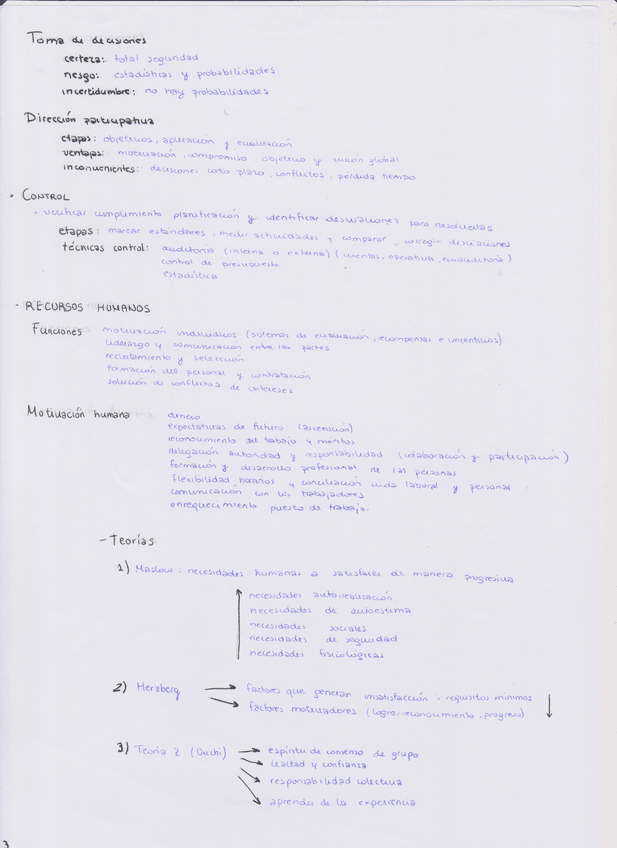 Toma de decisiones
certeza: total seguridad
riesgo: estadísticas y probabilidades
incertidumbre: no hay probabilidades
Dirección participativa
etapas: objetivos, aplicación y evaluación
ventajas: motivación, compromiso objetivo y visión global
inconvenientes: decisiones corto plazo, conflictos, pérdida tiempo
· CONTROL
· verificar cumplimiento planificación y identificar desviaciones para resolverlas
etapas: marcar estándares, medir actividades y comparar, corregir desviaciones
técnicas control: auditoría (interna o externa) (cuentas, operativa, ecoauditoría)
control de presupuesto
estadística
· RECURSOS HUMANOS
Funciones motivación individuos (sistemas de evaluación, recompensas e incentivos)
liderazgo y comunicación entre las partes
reclutamiento y selección
formación del personal y contratación
solución de conflictos de intereses
Motivación humana dinero
expectativas de futuro (ascensión)
reconocimiento del trabajo y méritos
delegación autoridad y responsabilidad (colaboración y participación)
formación y desarrollo profesional de las personas
flexibilidad horarios y conciliación vida laboral y personal
comunicación con los trabajadores
enriquecimiento puesto de trabajo.
- Teorías
1) Maslow: necesidades humanas a satisfacer de manera progresiva
necesidades autorrealización
necesidades de autoestima
necesidades sociales
necesidades de seguridad
necesidades fisiológicas
2) Herzberg → factores que generan insatisfacción: requisitos mínimos
→ factores motivadores (logro, reconocimiento, progreso)
3) Teoría Z (Ouchi) → espíritu de consenso de grupo
→ lealtad y confianza
→ responsabilidad colectiva
→ aprender de la experiencia
3